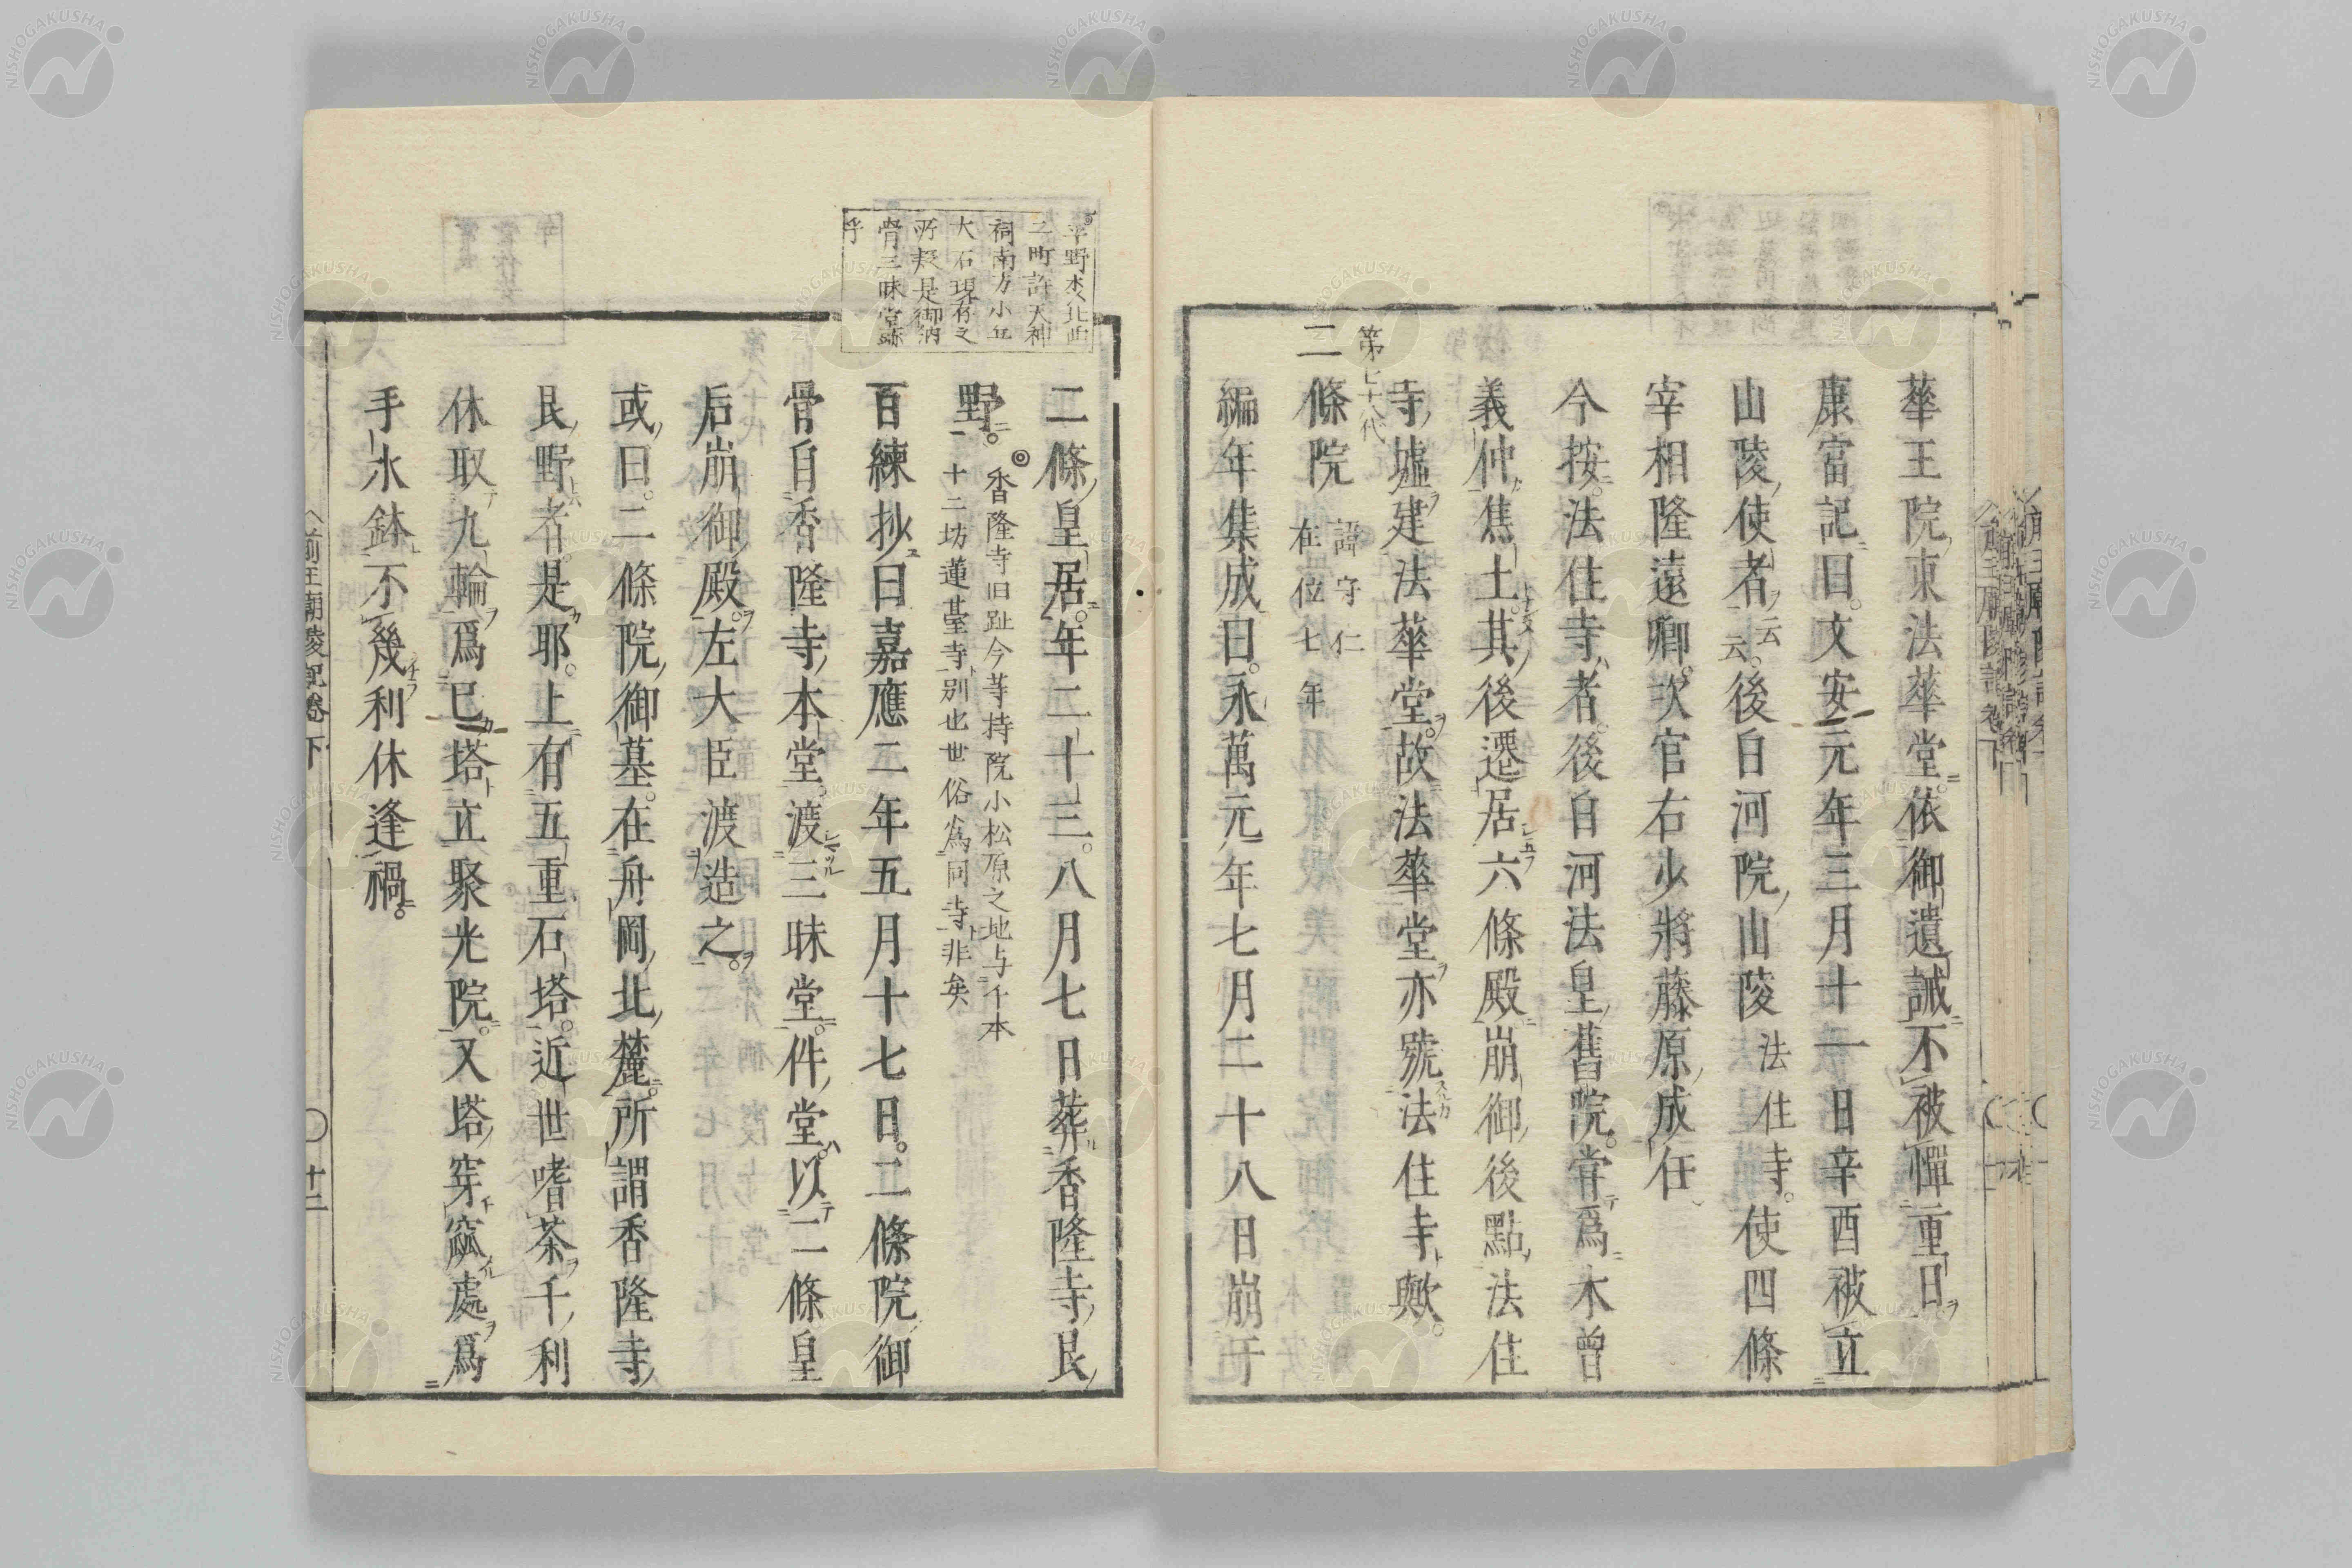 華王院東法華堂依御遺誡不被憚重日
康富記曰文安元年三月十一日辛酉被立
山陵使者云云後白河院山陵法住寺使四條
宰相隆遠卿次官右少將藤原成任
今按法住寺者後白河法皇舊院嘗爲木曾
義仲焦土其後遷居六條殿崩御後點法住
寺墟建法華堂故法華堂亦號法住寺歟
第七十八代
二條院 諱守仁
在位七年
編年集成曰永萬元年七月二十八日崩于
平野社北西
二町許天神
祠南方小丘
大石現存之
所疑是御納
骨三昧堂跡
乎
二條皇居年二十三八月七日葬香隆寺艮
野 ◎香隆寺旧趾今等持院小松原之地与千本
十二坊蓮臺寺別也世俗爲同寺非矣
百練抄曰嘉應二年五月十七日二條院御
骨自香隆寺本堂渡三昧堂件堂以二條皇
后崩御殿左大臣渡造之
或曰二條院御墓在舟岡北麓所謂香隆寺
艮野者是耶上有五重石塔近世嗜茶千利
休取九輪爲己塔立聚光院又塔穿窳處爲
手水鉢不幾利休逢禍
前王廟陵記卷下 〇十二